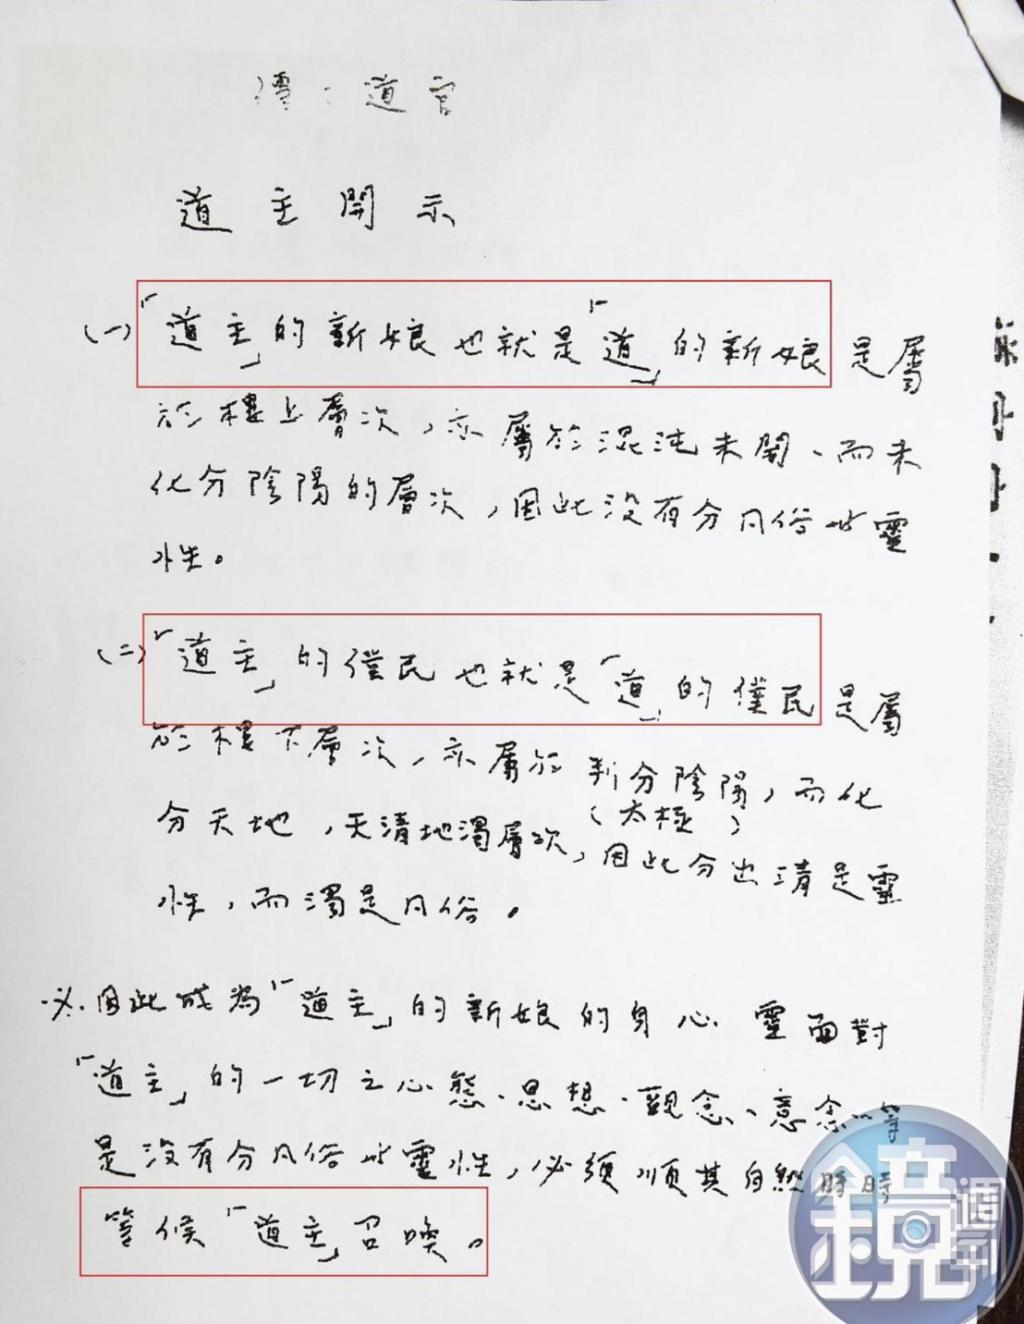 澪：道宮
道主開示
(一)「道主」的新娘也就是「道」的新娘是屬
於樓上層次，亦屬於混沌未開、而未
化分陰陽的層次，因此没有分凡俗與靈
性。
(二)「道主」的僕民也就是「道」的僕民是屬
於樓下層次，亦屬於判分陰陽，而化
(太極)
分天地，天清地濁層次，因此分出清是靈
性，而濁是凡俗。
因此成為「道主」的新娘的身心靈面對
「道主」的一切之心態、思想、觀念、意念…等
是没有分凡俗與靈性，必須順其自然時時
等候「道主」召喚。
鏡週刊